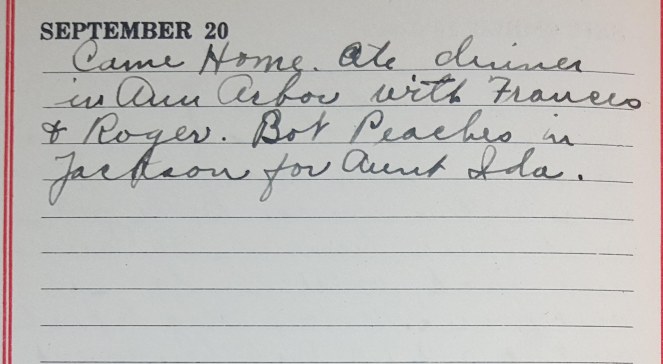 SEPTEMBER 20
Came Home. Ate dinner
in Ann Arbor with Frances
& Roger. Bot Peaches in
Jackson for Aunt Ida.